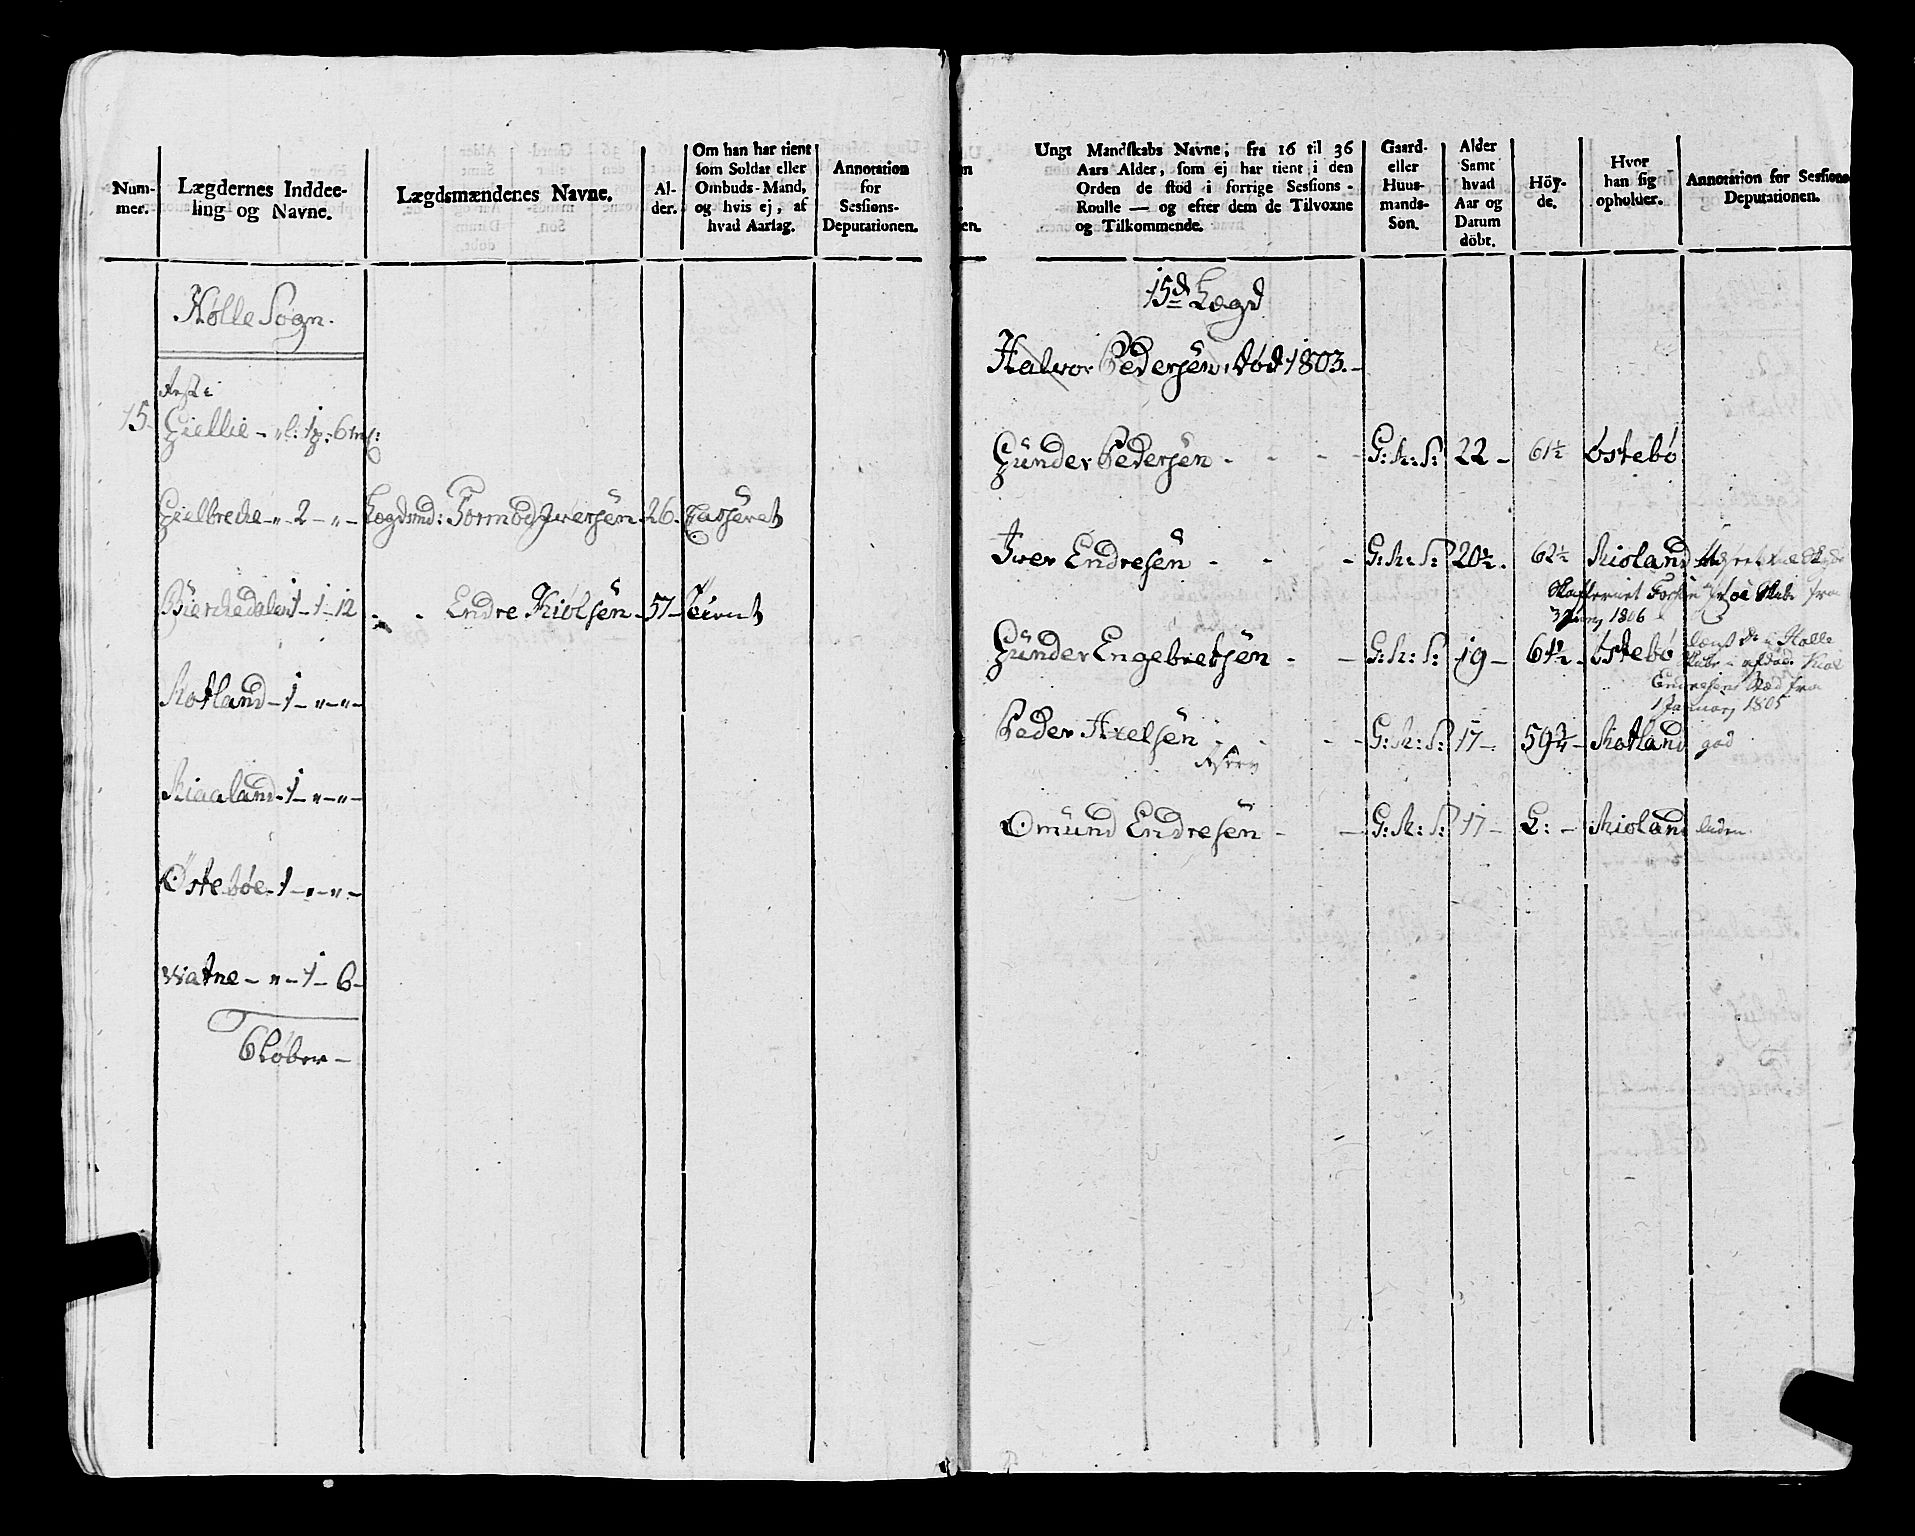 Num-
mer.
Lægdernes Inddee-
ling og Navne.
Lægdsmændenes Navne.
Al-
der.
Om han har tient
som Soldat eller
Ombuds-Mand,
og hvis ej, af
hvad Aarsag.
Annotation
for
Sessions-
Deputationen.
Holle Sogn.
15.
Giellie - " l: 1 p: 6 m#:
Gielbreche - " - 2 - " - Lægdsmd: Tormod Iversen - 26 - Casseret
Bierchedalen 1 - 1 - 12 - - Endre Kiolsen - 57 - tient
Rotland - 1 - " - " -
Miaaland - 1 - " - " -
Østebøe - 1 - " - " -
Watne - " - 1 - 6 -
6 Løber -
Ungt Mandskabs Navne; fra 16 til 36
Aars Alder, som ej har tient i den
Orden de stod i forrige Sessions-
Roulle — og efter dem de Tilvoxne
og Tilkommende.
Gaard-
eller
Huus-
mands-
Son.
Alder
Samt
hvad
Aar og
Datum
döbt.
Höy-
de.
Hvor
han sig
opholder.
Annotation for Sessions
Deputationen.
15de Lægd
Halvor Pedersen, død 1803. -
Gunder Pedersen - - - - G: M: S: 22 - 61½ Østebø
Iver Endresen - - - G: M: S: 20½. 62½ Mioland
fra
3 Juny 1806
Gunder Engebretsen - - G: M: S: 19 - 61½ - Østebø
i Holle
afdøde Kiol
Endresens Stæd fra
1 January 1805
Peder Axelsen - - - - G: M: S: 17 - 59¾ - Rotland god
Omund Endresen - - G: M: S: 17 - L: - Mioland liden.